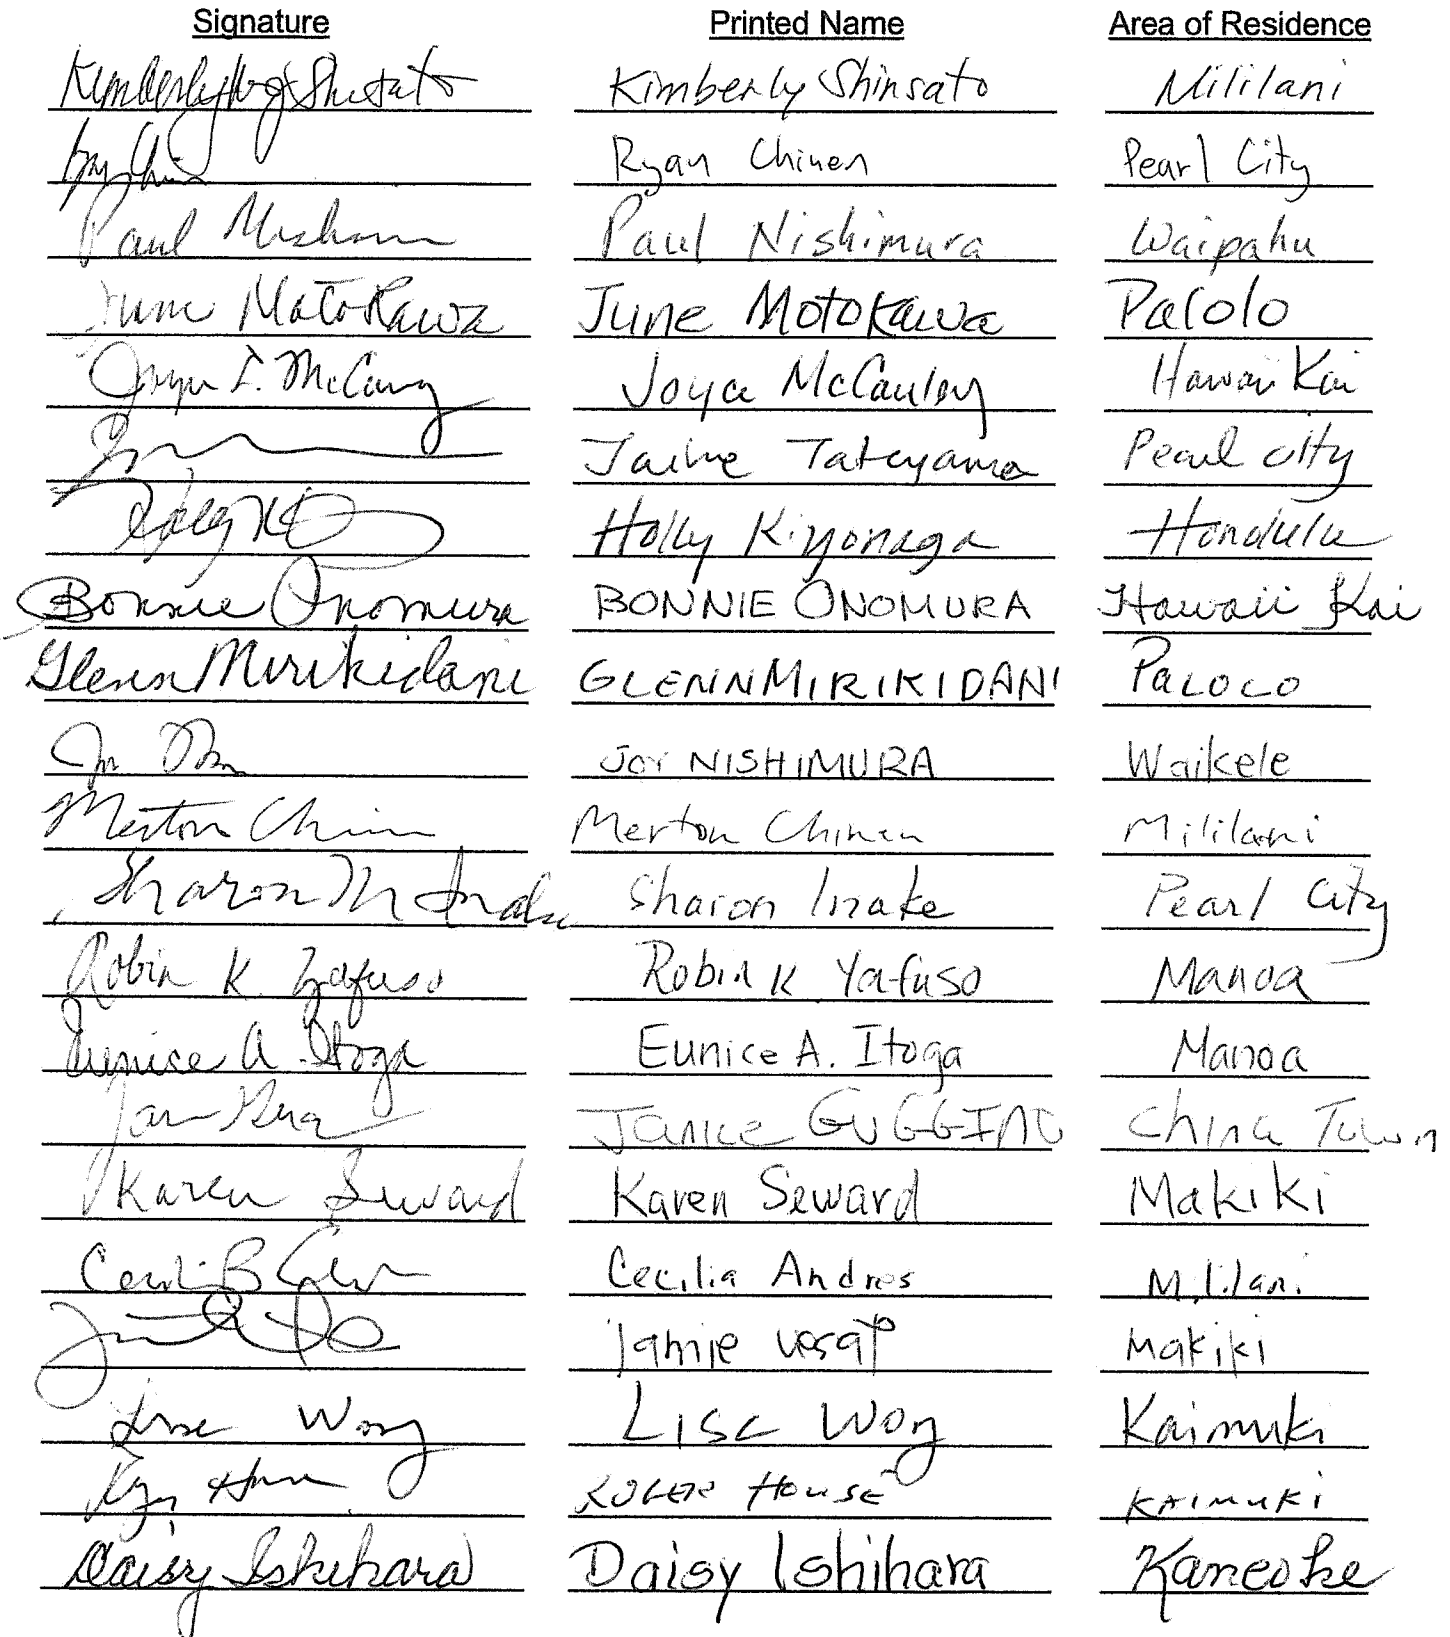 Signature Printed Name Area of Residence
Kimberly Shinsato Kimberly Shinsato Mililani
Ryan Chinen Pearl City
Paul Nishimura Paul Nishimura Waipahu
June Motokawa June Motokawa Palolo
Joyce McCauley Hawaii Kai
Jaine Tateyama Pearl City
Holly Kiyonaga Honolulu
Bonnie Onomura BONNIE ONOMURA Hawaii Kai
Glenn Mirikidani GLENN MIRIKIDANI PALOLO
JOY NISHIMURA Waikele
Merton Chinen Merton Chinen Mililani
Sharon M Inake Sharon Inake Pearl City
Robin K. Yafuso Robin K Yafuso Manoa
Eunice A. Itoga Eunice A. Itoga Manoa
Janice GUGGINO China Town
Karen Seward Karen Seward Makiki
Cecilia Andres Mililani
Jamie Makiki
Lisa Wong Lisa Wong Kaimuki
ROGER HOUSE KAIMUKI
Daisy Ishihara Daisy Ishihara Kaneohe